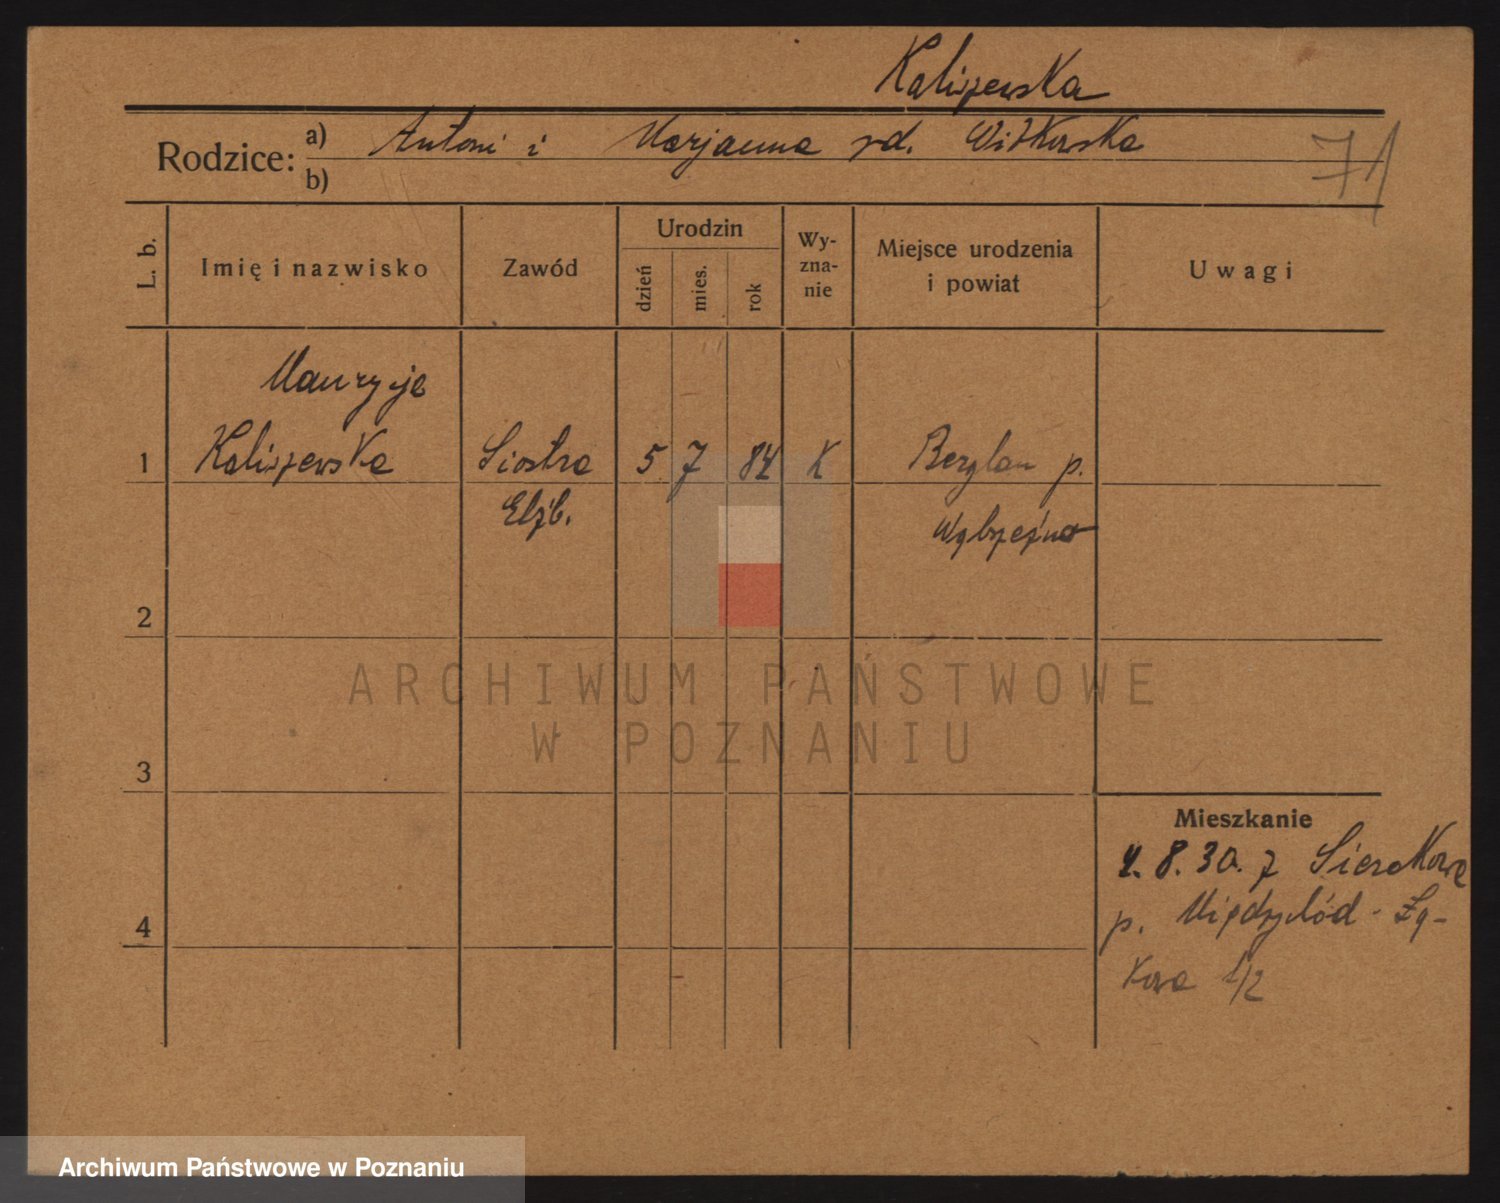 Kaliszewska
Rodzice: a) Antoni i Marjanna zd. Witkowska
b)
71
L. b.
Imię i nazwisko
Zawód
Urodzin
dzień
mies.
rok
Wy-
zna-
nie
Miejsce urodzenia
i powiat
Uwagi
Maurycja
1 Kaliszewska Siostra 5 7 84 K p.
Elżb. Wąbrzeźno
2
3
4
Mieszkanie
4.8.30. z Sierakowa
p. Międzychód - Łą-
kowa 1/2
ARCHIWUM PAŃSTWOWE
W POZNANIU
Archiwum Państwowe w Poznaniu